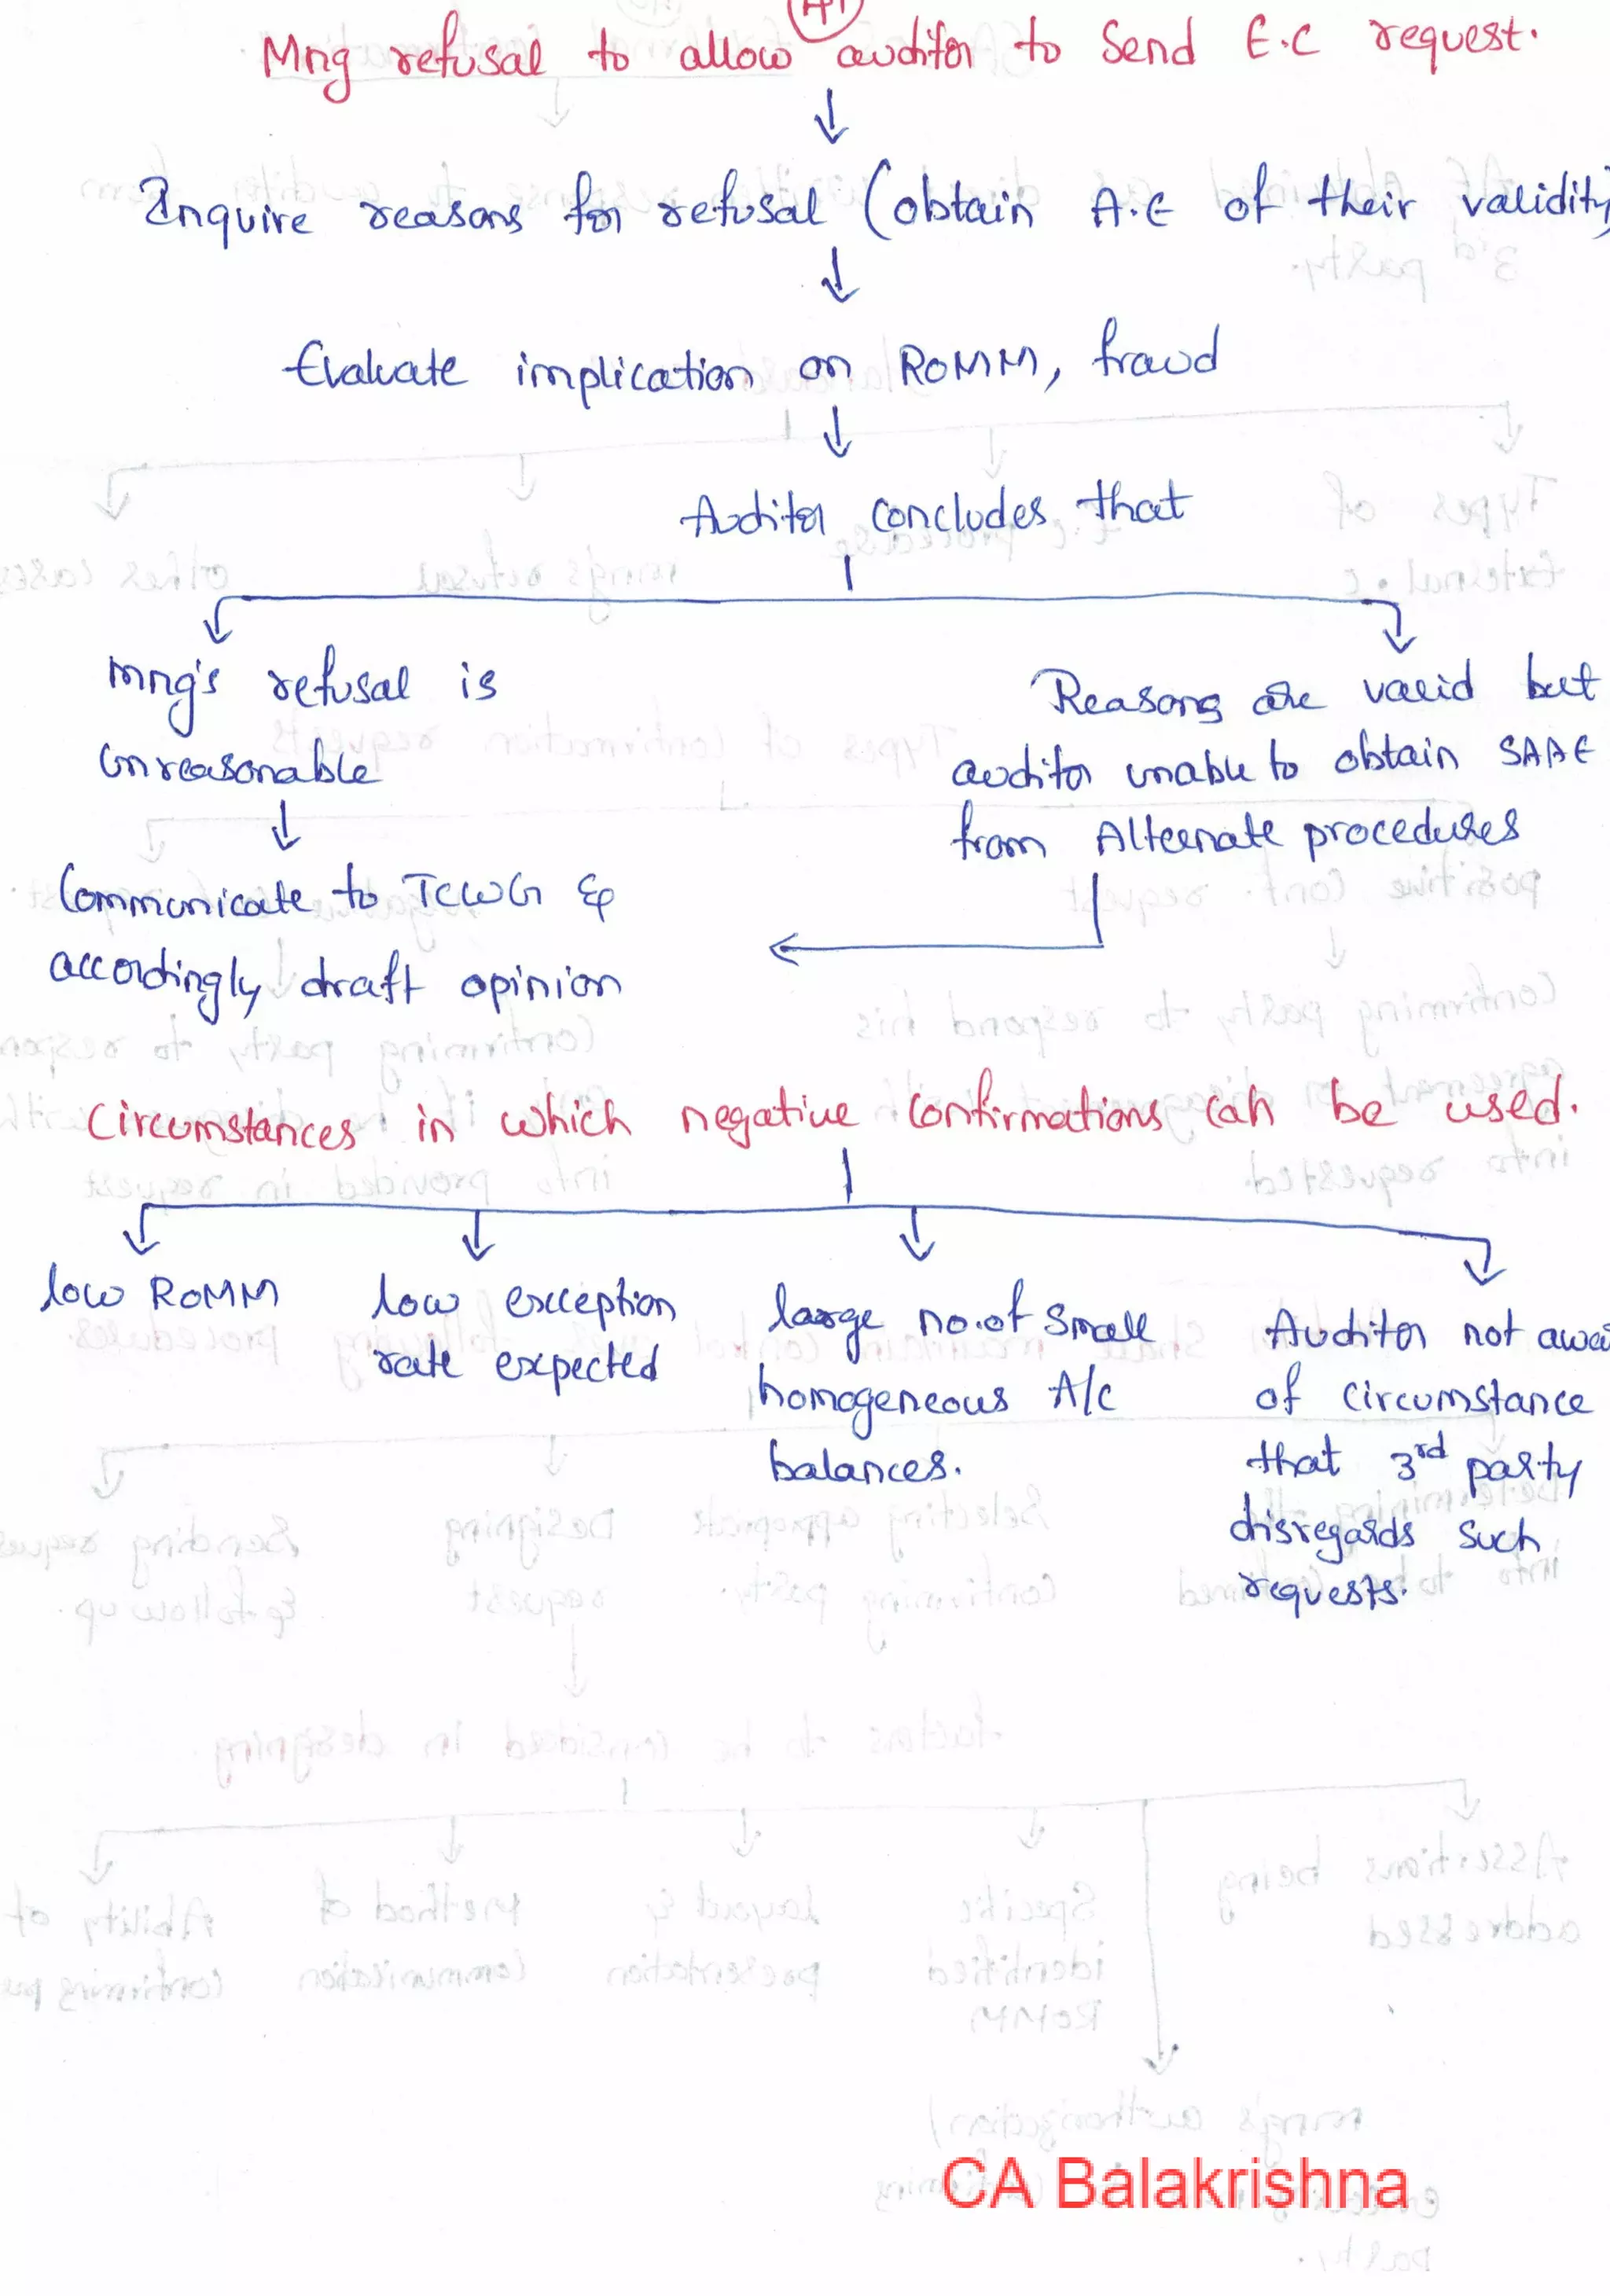 Mng refusal to allow auditor to Send E.C request.
Inquire reasons for refusal (obtain A.E of their validity)
Evaluate implication on ROMM, fraud
Auditor concludes that
Mng's refusal is
unreasonable
Reasons are valid but
auditor unable to obtain SAAE
from Alternate procedures
Communicate to TCWG &
accordingly draft opinion
Circumstances in which negative confirmations can be used.
low ROMM
low exception
rate expected
large no.of Small
homogeneous A/c
balances.
Auditor not
of circumstance
that 3rd party
disregards such
requests.
CA Balakrishna